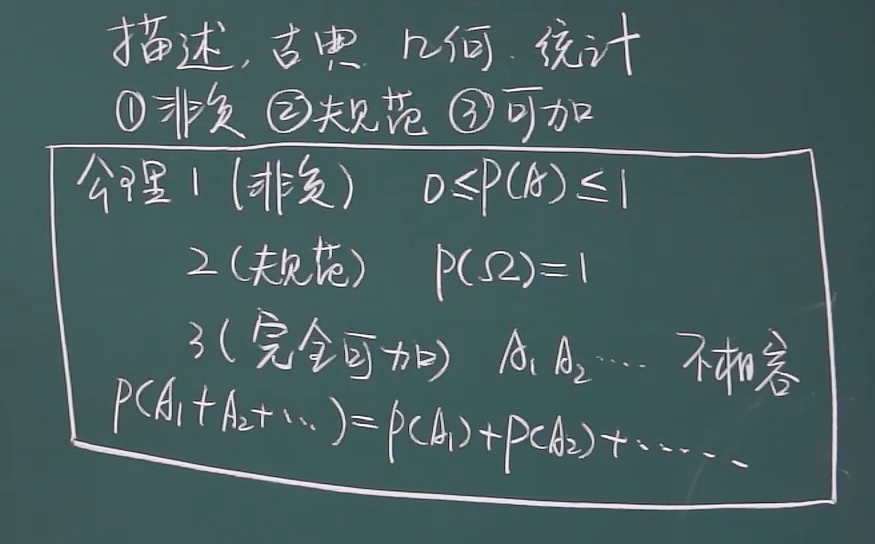 描述, 古典 几何. 统计
①非负 ②规范 ③可加
公理1 (非负) 0≤P(A)≤1
2 (规范) P(Ω)=1
3 (完全可加) A₁ A₂ …… 不相容
P(A₁+A₂+…)=P(A₁)+P(A₂)+……